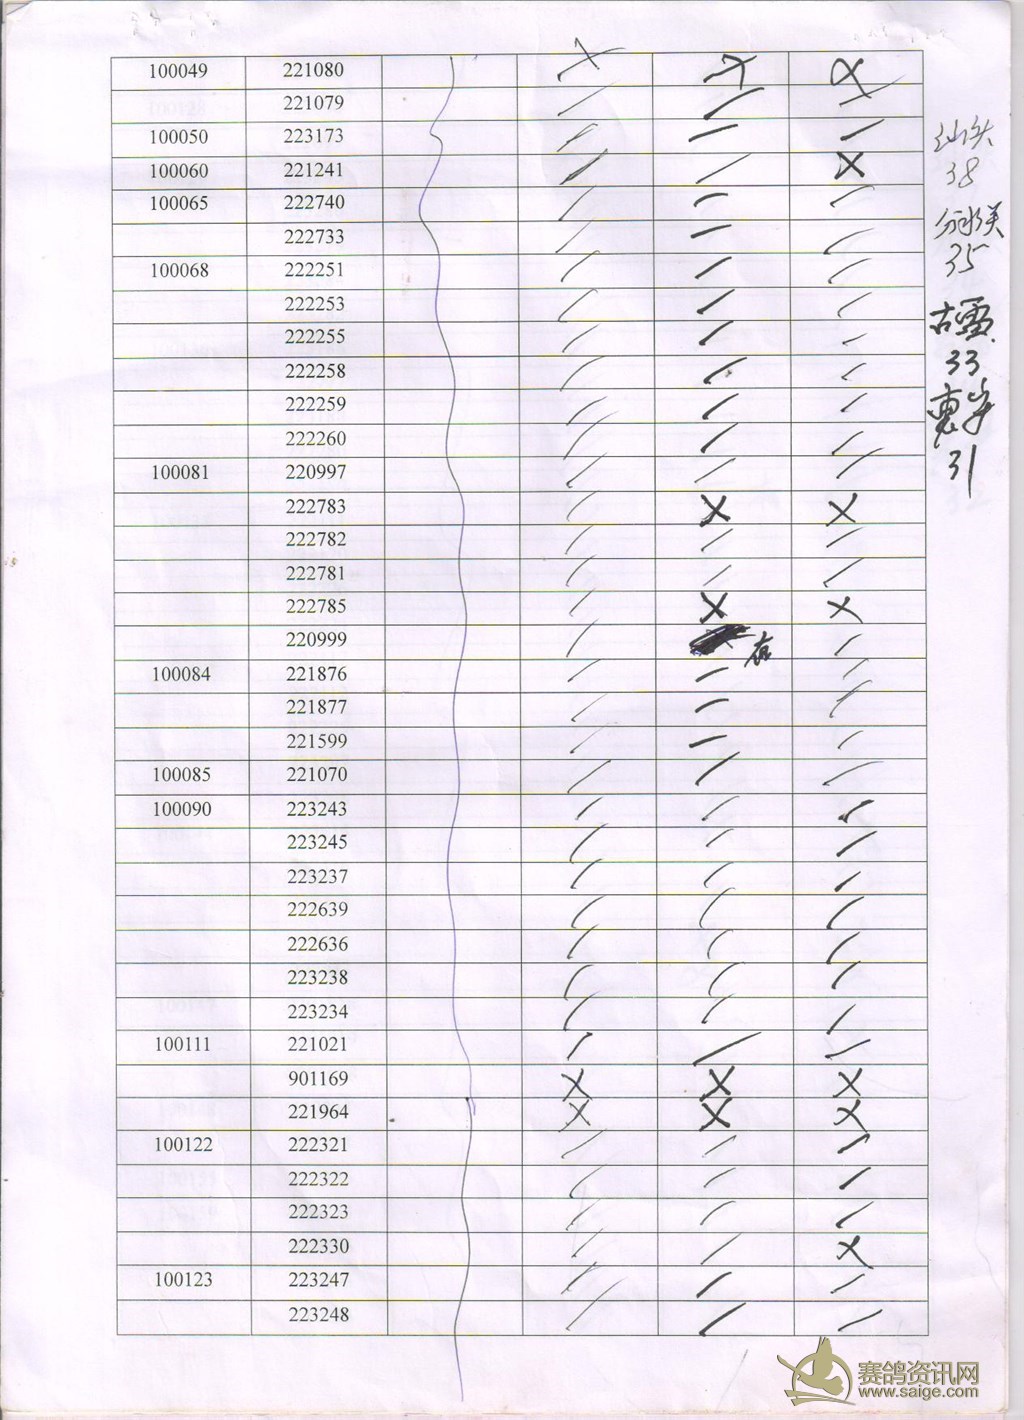 100049 221080
221079
100050 223173
100060 221241
100065 222740
222733
100068 222251
222253
222255
222258
222259
222260
100081 220997
222783
222782
222781
222785
220999 在
100084 221876
221877
221599
100085 221070
100090 223243
223245
223237
222639
222636
223238
223234
100111 221021
901169
221964
100122 222321
222322
222323
222330
100123 223247
223248
汕头
38
分水关
35
古雷
33
惠安
31
赛鸽资讯网
www.saige.com